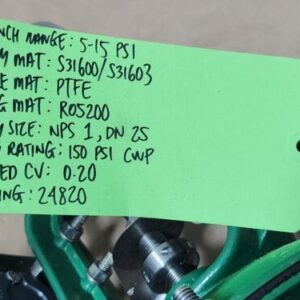 NCH RANGE: 5-15 PSI
Y MAT: S31600/S31603
E MAT: PTFE
G MAT: R05200
Y SIZE: NPS 1, DN 25
RATING: 150 PSI CWP
ED CV: 0.20
ING: 24820